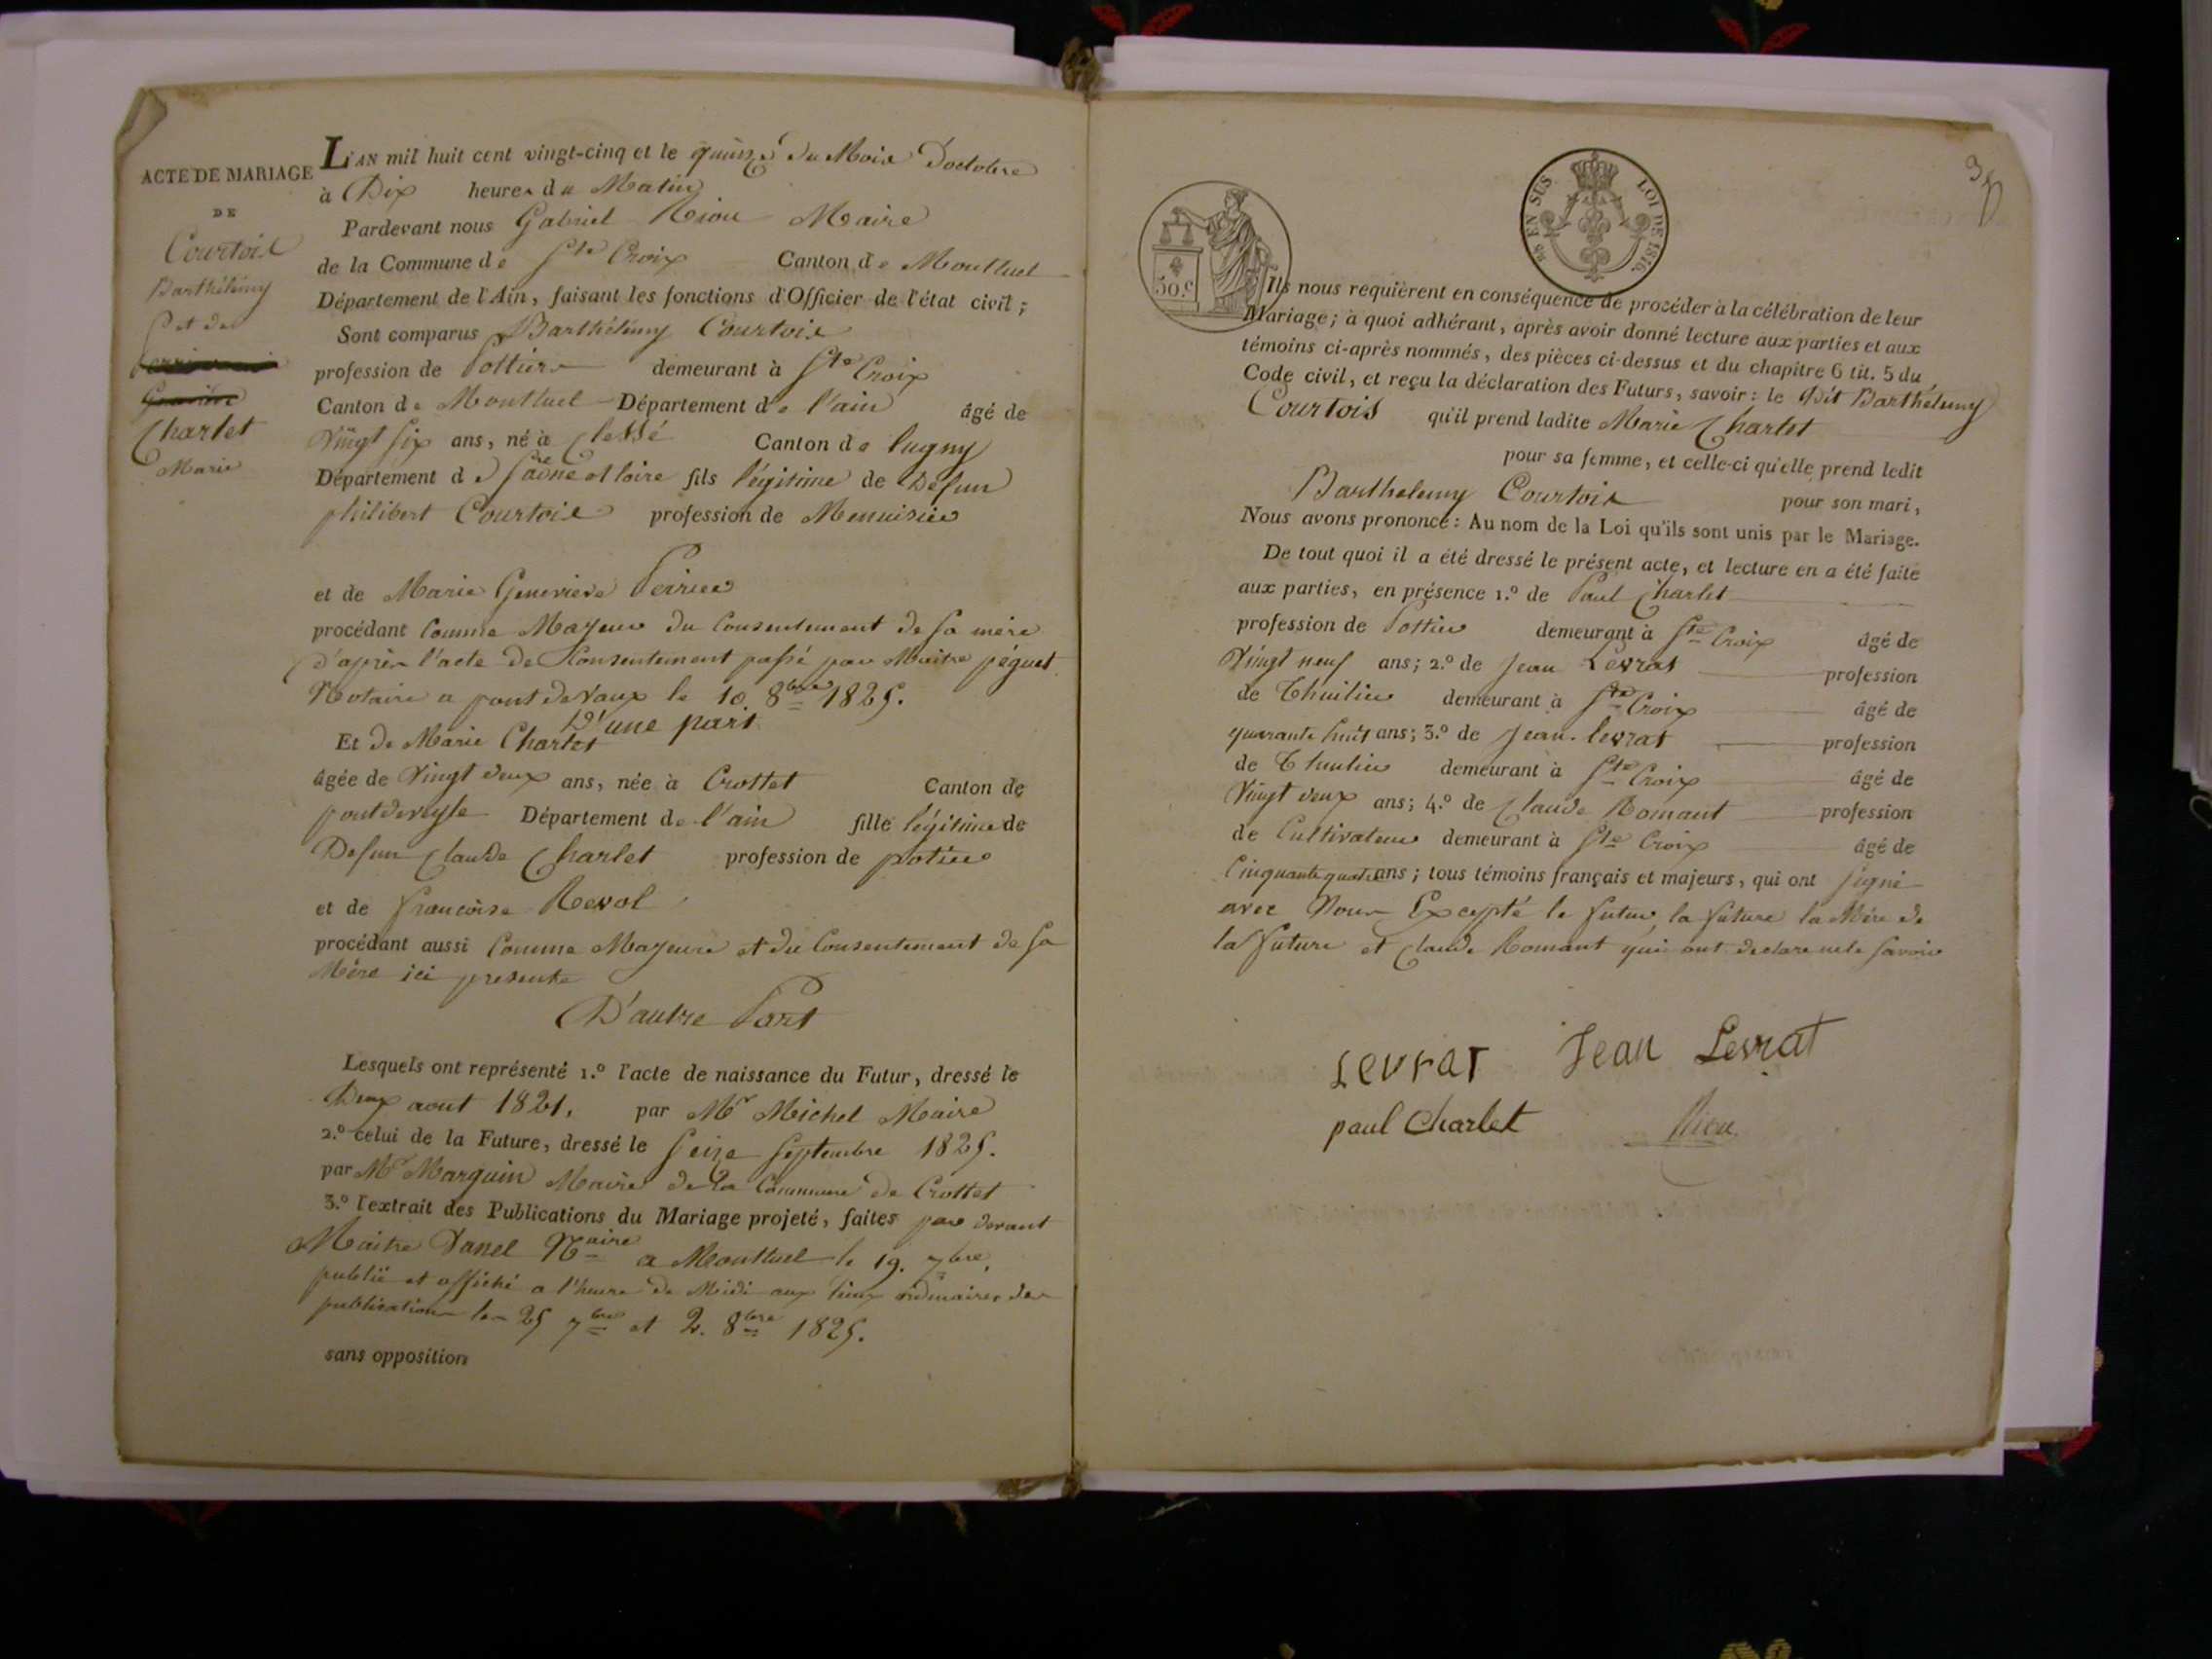 ACTE DE MARIAGE
DE
Courtois
Barthélemy
et de
Charlet
Marie
L'AN mil huit cent vingt-cinq et le quinze du Mois d'octobre
à Dix heures du Matin
Pardevant nous Gabriel Riou Maire
de la Commune de Ste Croix Canton de Montluel
Département de l'Ain, faisant les fonctions d'Officier de l'état civil ;
Sont comparus Barthélémy Courtois
profession de Pottier demeurant à Ste Croix
Canton de Montluel Département de l'ain âgé de
Vingt six ans, né à Clessé Canton de lugny
Département de Saône et loire fils légitime de Defun
philibert Courtois profession de Menuisier
et de Marie Genevieve Perrier
procédant Comme Majeur du Consentement de sa mère
d'après l'acte de Consentement passé par Maitre péguet
Notaire a pont de Vaux le 10. 8bre 1825.
D'une part
Et de Marie Charlet
âgée de Vingt deux ans, née à Crottet Canton de
pontdevesle Département de l'ain fille légitime de
Defun Claude Charlet profession de potier
et de francoise Revol
procédant aussi Comme Majeure et du Consentement de sa
Mère ici presente
D'autre Part
Lesquels ont représenté 1.º l'acte de naissance du Futur, dressé le
Deux aout 1821. par Mr Michel Maire
2.º celui de la Future, dressé le Seize Septembre 1825.
par Mr Marguin Maire de la Commune de Crottet
3.º l'extrait des Publications du Mariage projeté, faites par devant
Maitre Vanel Naire a Montluel le 19. 7bre.
publié et affiché a l'heure de Midi aux lieux ordinaires des
publications les 25 7bre et 2. 8bre 1825.
sans opposition
3
50.c
EN SUS
LOI DE 1816.
Ils nous requièrent en conséquence de procéder à la célébration de leur
Mariage ; à quoi adhérant, après avoir donné lecture aux parties et aux
témoins ci-après nommés, des pièces ci-dessus et du chapitre 6 tit. 5 du
Code civil, et reçu la déclaration des Futurs, savoir : le Dit Barthélemy
Courtois qu'il prend ladite Marie Charlet
pour sa femme, et celle-ci qu'elle prend ledit
Barthelemy Courtois pour son mari,
Nous avons prononcé : Au nom de la Loi qu'ils sont unis par le Mariage.
De tout quoi il a été dressé le présent acte, et lecture en a été faite
aux parties, en présence 1.º de Paul Charlet
profession de Pottier demeurant à Ste Croix âgé de
Vingt neuf ans ; 2.º de Jean Levrat profession
de Thuilier demeurant à Ste Croix âgé de
quarante huit ans ; 3.º de Jean levrat profession
de Thuilier demeurant à Ste Croix âgé de
Vingt deux ans ; 4.º de Claude Romant profession
de Cultivateur demeurant à Ste Croix âgé de
Cinquante quatre ans ; tous témoins français et majeurs, qui ont signé
avec Nous Excepté le futur, la future la Mère de
la future et Claude Romant qui ont declare ne le savoir
Levrat Jean Levrat
paul Charlet Riou